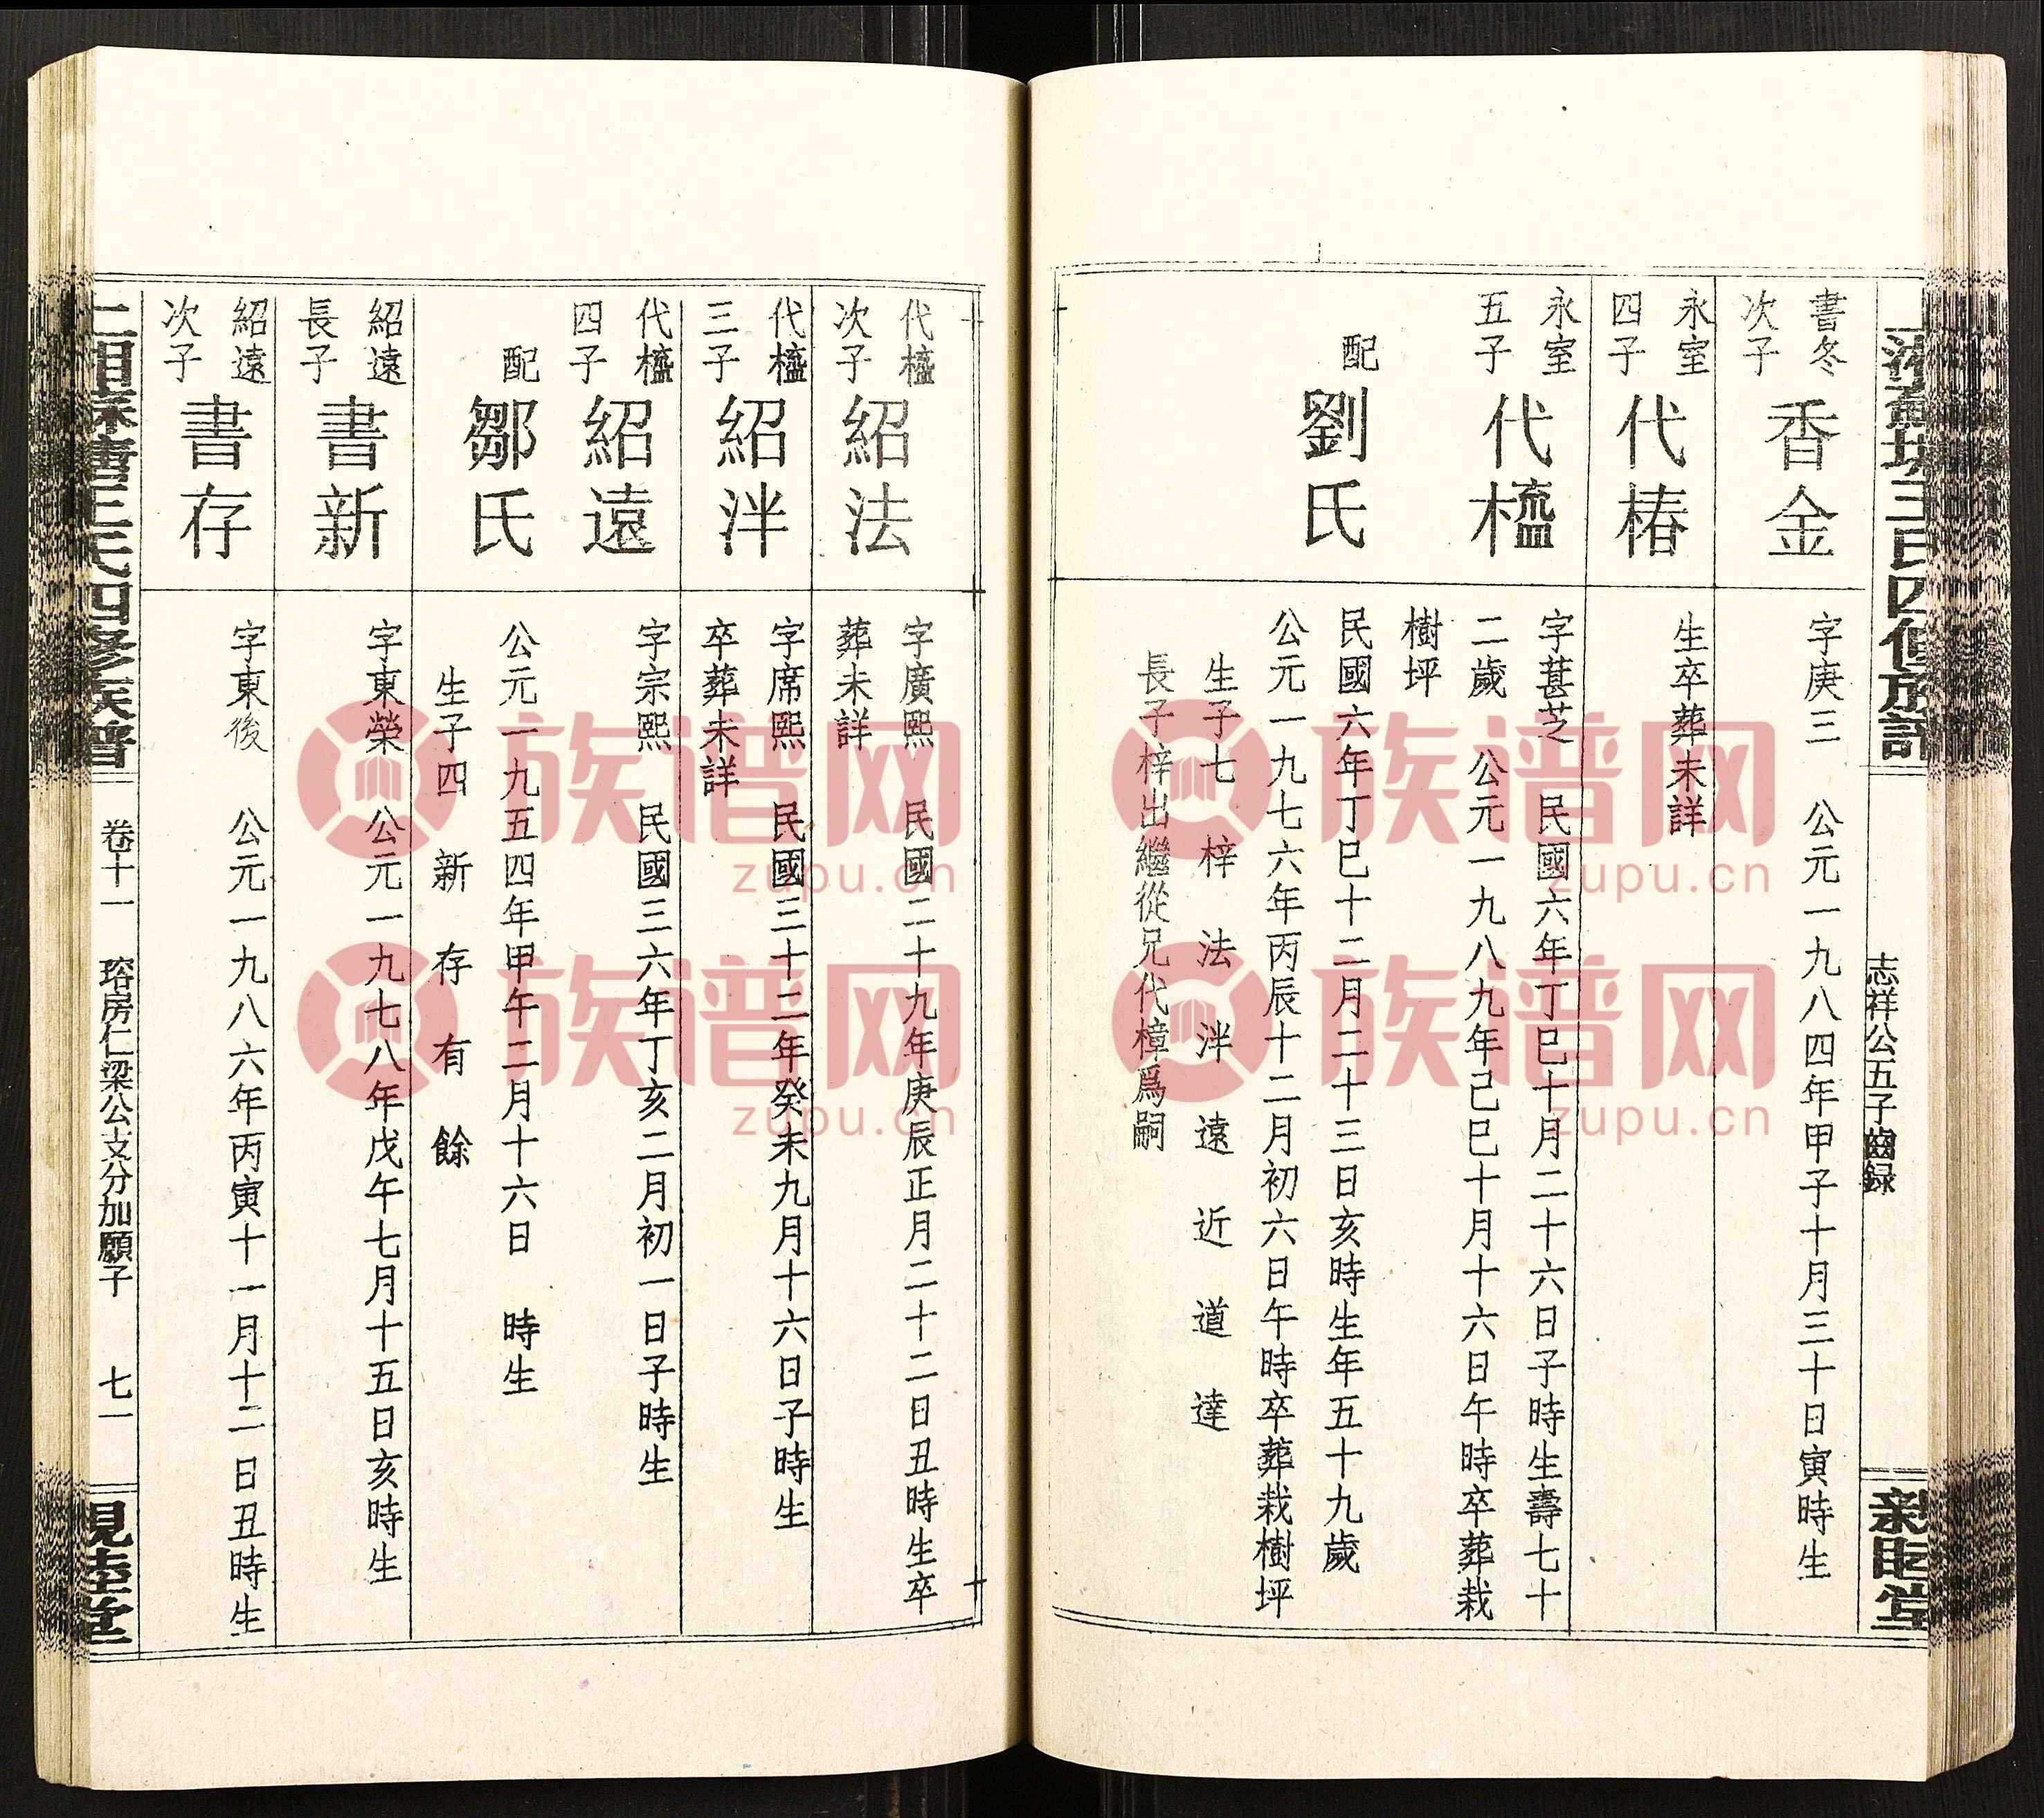 志祥公五子齒録
親睦堂
書冬
次子
香金
字庚三 公元一九八四年甲子十月三十日寅時生
永室
四子
代椿
生卒葬未詳
永室
五子
代橀
字甚芝 民國六年丁巳十月二十六日子時生壽七十
二歲 公元一九八九年己巳十月十六日午時卒葬栽
樹坪
配
劉氏
民國六年丁巳十二月二十三日亥時生年五十九歲
公元一九七六年丙辰十二月初六日午時卒葬栽樹坪
生子七 梓 法 泮 遠 近 道 達
長子梓出繼從兄代樟爲嗣
次子
紹法
字廣熙 民國二十九年庚辰正月二十二日丑時生卒
葬未詳
三子
紹泮
字席熙 民國三十二年癸未九月十六日子時生
卒葬未詳
四子
紹遠
字宗熙 民國三六年丁亥二月初一日子時生
配
鄒氏
公元一九五四年甲午二月十六日 時生
生子四 新 存 有 餘
紹遠
長子
書新
字東榮 公元一九七八年戊午七月十五日亥時生
紹遠
次子
書存
字東後 公元一九八六年丙寅十一月十二日丑時生
王氏四修族譜
卷十一 瑢房仁梁公支分加願子 七一
親睦堂
族谱网
zupu.cn
族谱网
zupu.cn
族谱网
zupu.cn
族谱网
zupu.cn